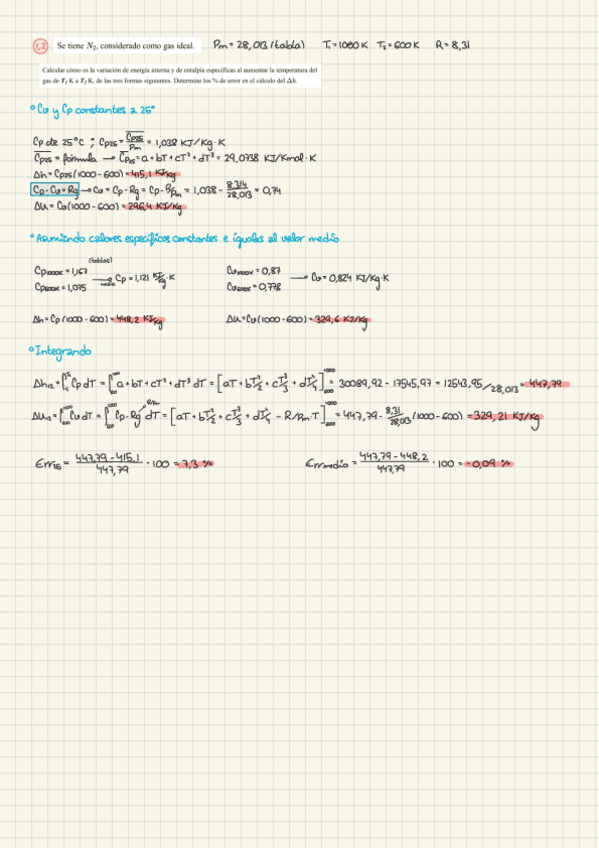 1.2 Se tiene N₂, considerado como gas ideal. Pm = 28,013 (tabla) T₁ = 1000 K T₂ = 600 K R = 8,31
Calcular cómo es la variación de energía interna y de entalpía específicas al aumentar la temperatura del
gas de T₁ K a T₂ K, de las tres formas siguientes. Determine los % de error en el cálculo del Δh.
° Cv y Cp constantes a 25°
Cp de 25°C ; Cp25 = Cp25/Pm = 1,038 KJ/Kg·K
Cp25 = fórmula → Cp25 = a + bT + cT² + dT³ = 29,0738 KJ/Kmol·K
Δh = Cp25 (1000 - 600) = 415,1 KJ/Kg
Cp - Cv = Rg → Cv = Cp - Rg = Cp - R/Pm = 1,038 - 8,314/28,013 = 0,74
ΔU = Cv (1000 - 600) = 296,4 KJ/Kg
° Asumiendo calores específicos constantes e iguales al valor medio
(tablas)
Cp1000K = 1,167 Cv1000K = 0,87
media → Cp = 1,121 KJ/Kg·K → Cv = 0,824 KJ/Kg·K
Cp600K = 1,075 Cv600K = 0,778
Δh = Cp (1000 - 600) = 448,2 KJ/Kg ΔU = Cv (1000 - 600) = 329,6 KJ/Kg
° Integrando
Δh12 = ∫ Cp dT = ∫ a + bT + cT² + dT³ dT = [aT + bT²/2 + cT³/3 + dT⁴/4] = 30089,92 - 17545,97 = 12543,95 / 28,013 = 447,79
ΔU12 = ∫ Cv dT = ∫ Cp - Rg dT = [aT + bT²/2 + cT³/3 + dT⁴/4 - R/Pm·T] = 447,79 - 8,31/28,013 (1000 - 600) = 329,21 KJ/Kg
Err25 = 447,79 - 415,1 / 447,79 · 100 = 7,3 % Errmedio = 447,79 - 448,2 / 447,79 · 100 = -0,09 %